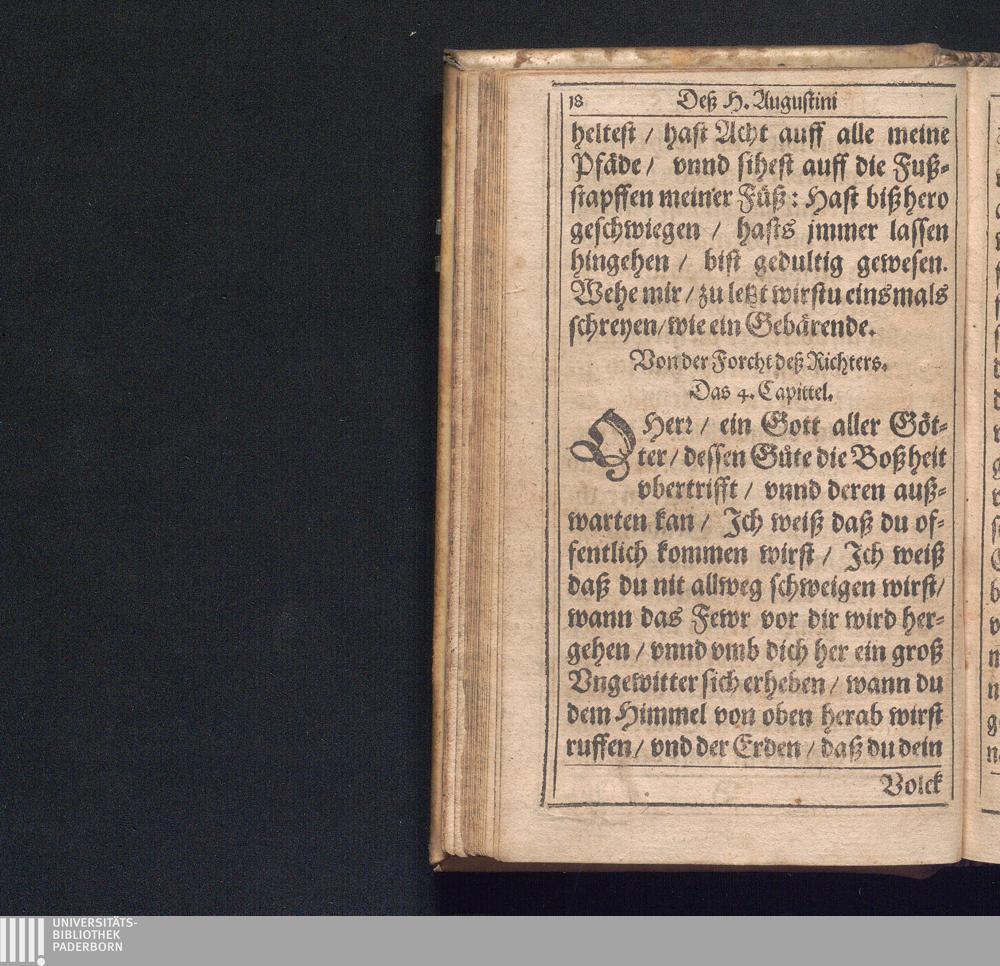 18 Deß H. Augustini
heltest / hast Acht auff alle meine
Pfäde / vnnd sihest auff die Fuß-
stapffen meiner Füß: Hast bißhero
geschwiegen / hasts jmmer lassen
hingehen / bist gedultig gewesen.
Wehe mir / zu letzt wirstu einsmals
schreyen / wie ein Gebärende.
Von der Forcht deß Richters.
Das 4. Capittel.
O Herr / ein Gott aller Göt-
ter / dessen Güte die Boßheit
vbertrifft / vnnd deren auß-
warten kan / Ich weiß daß du of-
fentlich kommen wirst / Ich weiß
daß du nit allweg schweigen wirst /
wann das Fewr vor dir wird her-
gehen / vnnd vmb dich her ein groß
Vngewitter sich erheben / wann du
dem Himmel von oben herab wirst
ruffen / vnd der Erden / daß du dein
Volck
UNIVERSITÄTS-
BIBLIOTHEK
PADERBORN